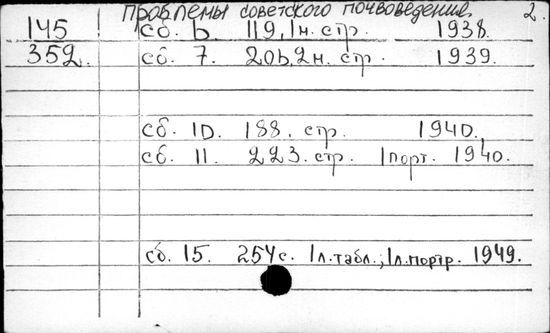 Проблемы советского почвоведения. 2.
145 сб. 6. 119, 1н. стр. 1938.
352. сб. 7. 206, 2н. стр. 1939.
сб. 10. 188. стр. 1940.
сб. 11. 223. стр. 1порт. 1940.
сб. 15. 254с. 1л.табл.; 1л.портр. 1949.